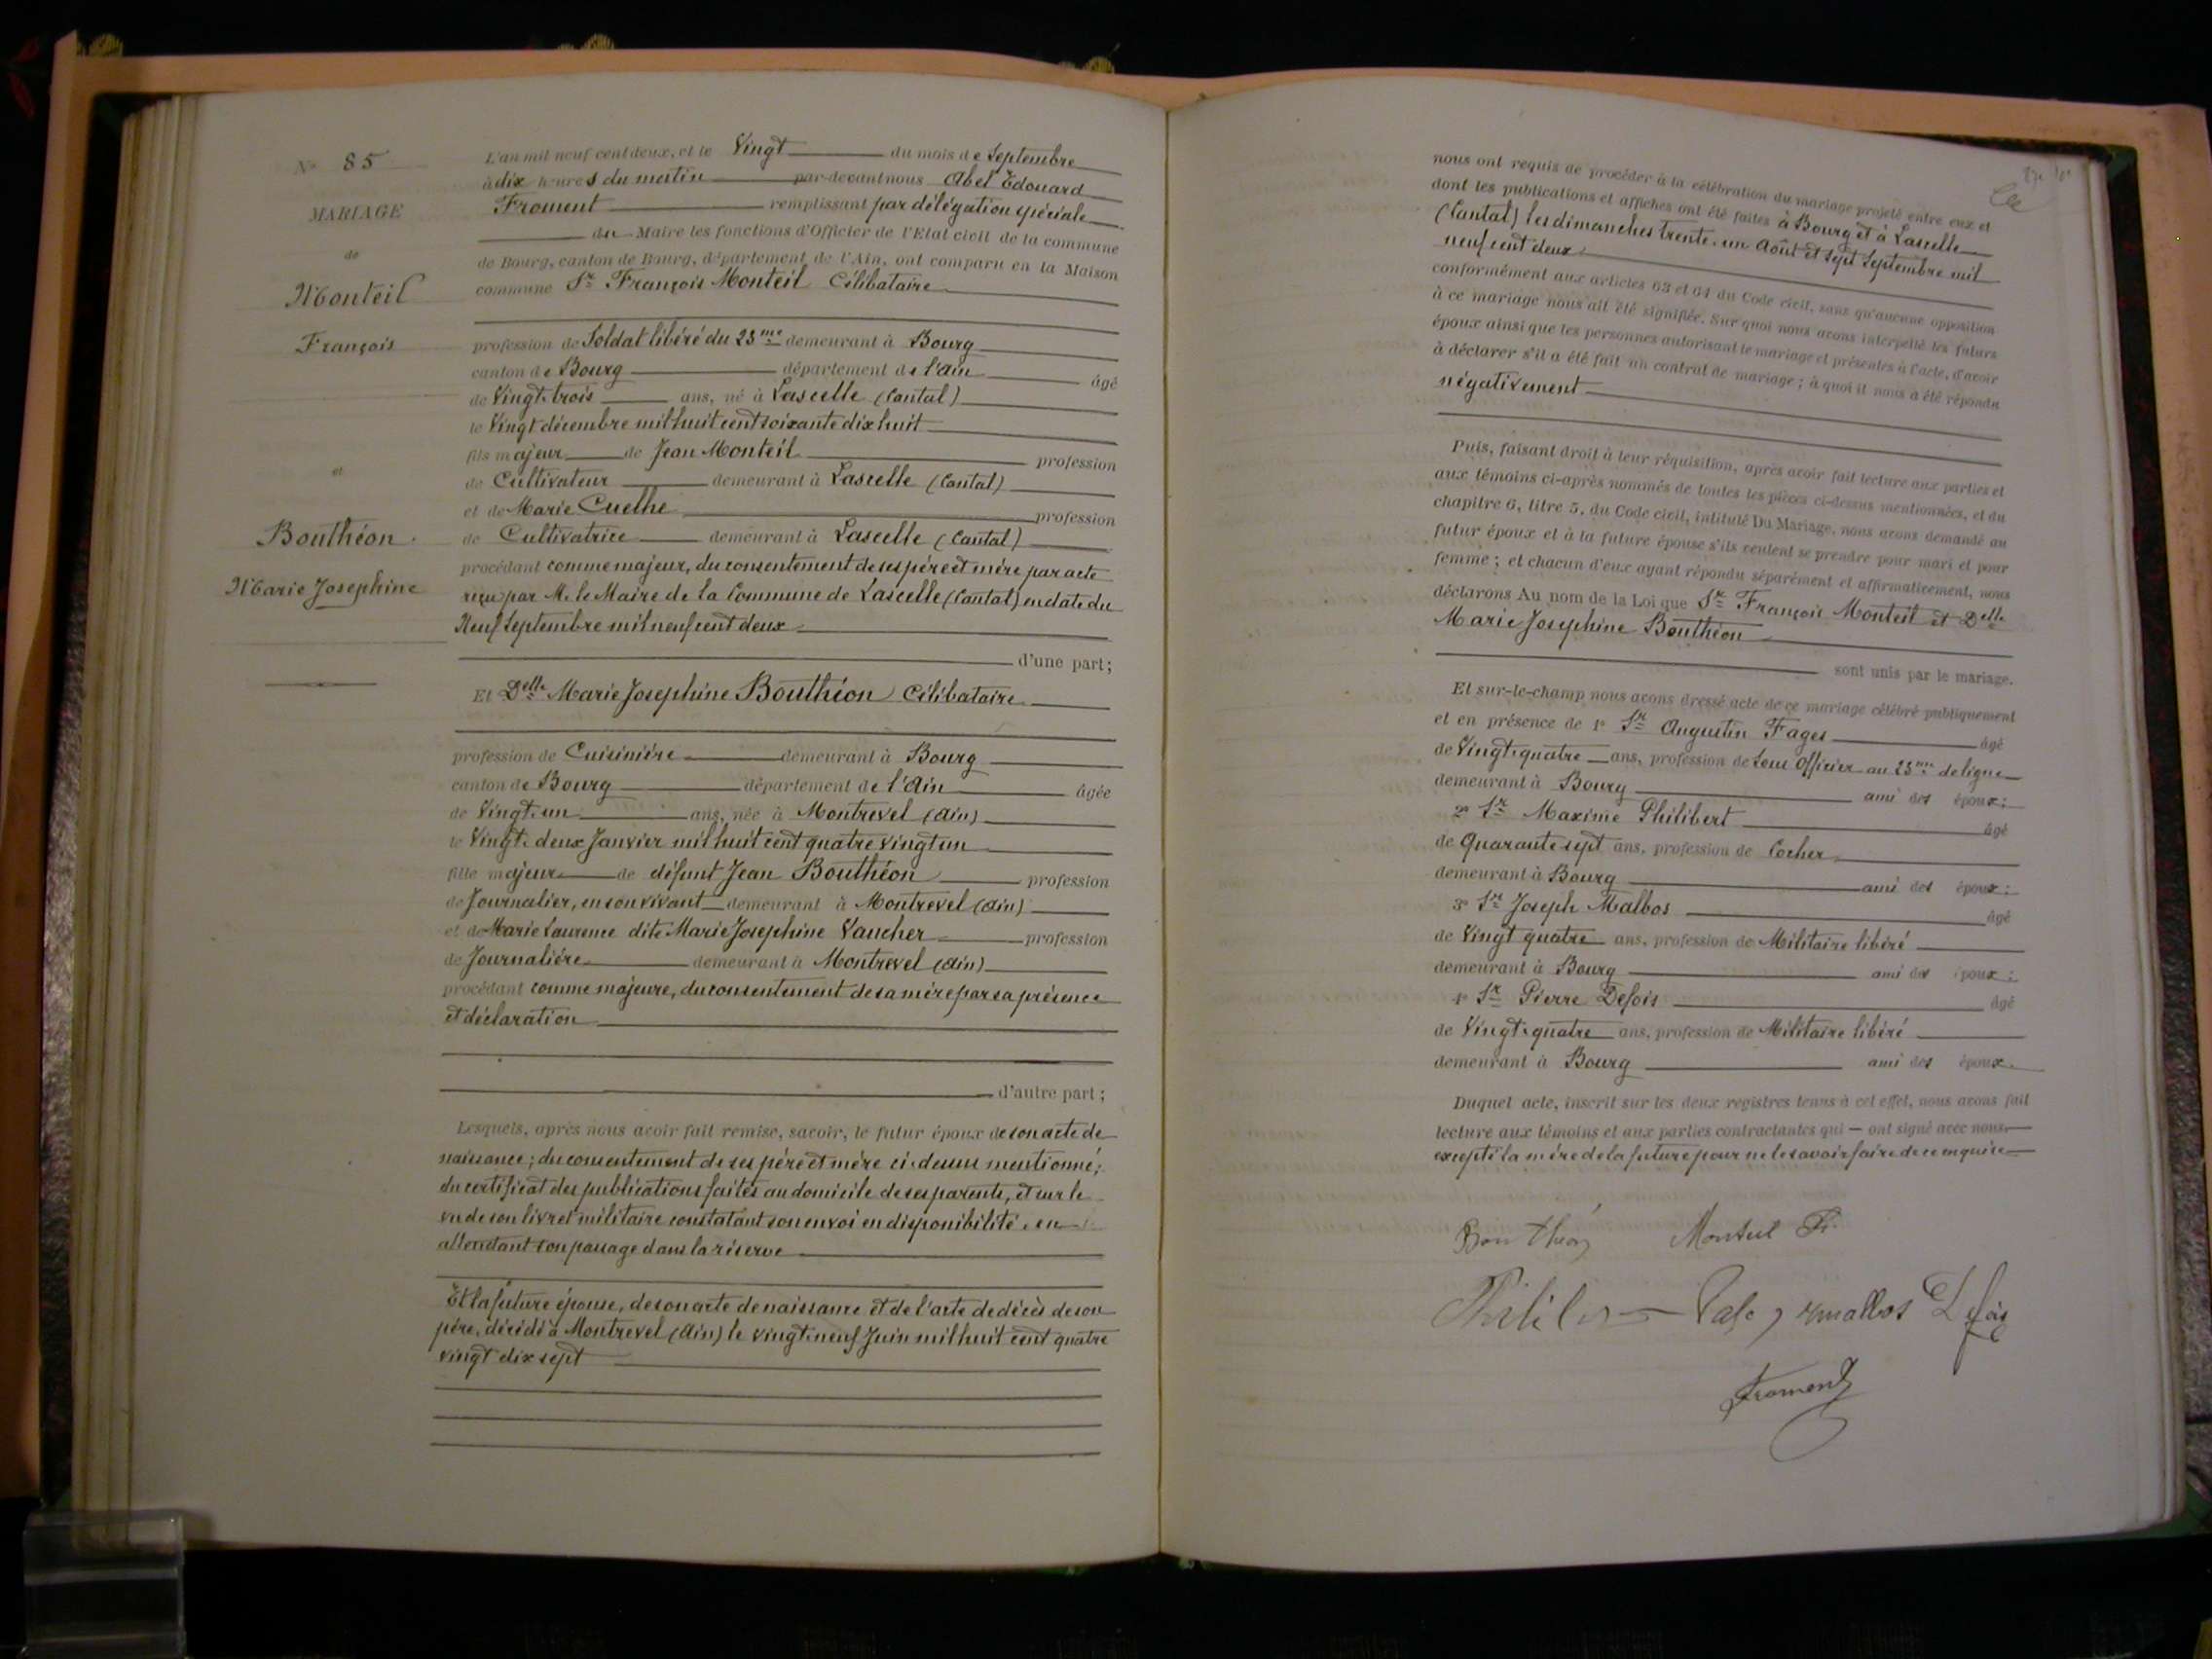 N° 85
MARIAGE
de
Monteil
François
et
Bouthéon
Marie Josephine
L'an mil neuf cent deux, et le Vingt du mois de Septembre
à dix heures du matin par-devant nous Abel Edouard
Froment remplissant par délégation spéciale
du Maire les fonctions d'Officier de l'Etat civil de la commune
de Bourg, canton de Bourg, département de l'Ain, ont comparu en la Maison
commune Sr François Monteil Célibataire
profession de Soldat libéré du 23me demeurant à Bourg
canton de Bourg département de l'Ain âgé
de Vingt-trois ans, né à Lascelle (Cantal)
le Vingt décembre mil huit cent soixante dix huit
fils majeur de Jean Monteil profession
de Cultivateur demeurant à Lascelle (Cantal)
et de Marie Cuelhe profession
de Cultivatrice demeurant à Lascelle (Cantal)
procédant comme majeur, du consentement de ses père et mère par acte
reçu par M. le Maire de la Commune de Lascelle (Cantal) en date du
Neuf Septembre mil neuf cent deux
d'une part;
Et Delle Marie Josephine Bouthéon Célibataire
profession de Cuisinière demeurant à Bourg
canton de Bourg département de l'Ain âgée
de Vingt-un ans, née à Montrevel (Ain)
le Vingt-deux Janvier mil huit cent quatre vingt un
fille majeure de défunt Jean Bouthéon profession
de Journalier, en son vivant demeurant à Montrevel (Ain)
et de Marie Laurence dite Marie Josephine Vaucher profession
de Journalière demeurant à Montrevel (Ain)
procédant comme majeure, du consentement de sa mère par sa présence
et déclaration
d'autre part;
Lesquels, après nous avoir fait remise, savoir, le futur époux de son acte de
naissance; du consentement de ses père et mère ci-dessus mentionné;
du certificat des publications faites au domicile de ses parents, et sur le
vu de son livret militaire constatant son envoi en disponibilité en
attendant son passage dans la réserve
Et la future épouse, de son acte de naissance et de l'acte de décès de son
père, décédé à Montrevel (Ain) le vingt-neuf Juin mil huit cent quatre
vingt dix sept
nous ont requis de procéder à la célébration du mariage projeté entre eux et
dont les publications et affiches ont été faites à Bourg et à Lascelle
(Cantal) les dimanches trente-un Août et sept Septembre mil
neuf cent deux
conformément aux articles 63 et 64 du Code civil, sans qu'aucune opposition
à ce mariage nous ait été signifiée. Sur quoi nous avons interpellé les futurs
époux ainsi que les personnes autorisant le mariage et présentes à l'acte, d'avoir
à déclarer s'il a été fait un contrat de mariage; à quoi il nous a été répondu
négativement
Puis, faisant droit à leur réquisition, après avoir fait lecture aux parties et
aux témoins ci-après nommés de toutes les pièces ci-dessus mentionnées, et du
chapitre 6, titre 5, du Code civil, intitulé Du Mariage, nous avons demandé au
futur époux et à la future épouse s'ils veulent se prendre pour mari et pour
femme; et chacun d'eux ayant répondu séparément et affirmativement, nous
déclarons Au nom de la Loi que Sr François Monteil et Delle
Marie Josephine Bouthéon
sont unis par le mariage.
Et sur-le-champ nous avons dressé acte de ce mariage célébré publiquement
et en présence de 1° Sr Augustin Fages âgé
de Vingt-quatre ans, profession de Sous Officier au 23me de ligne
demeurant à Bourg ami des époux;
2° Sr Maxime Philibert âgé
de Quarante sept ans, profession de Cocher
demeurant à Bourg ami des époux;
3° Sr Joseph Malbos âgé
de Vingt quatre ans, profession de Militaire libéré
demeurant à Bourg ami des époux;
4° Sr Pierre Defois âgé
de Vingt-quatre ans, profession de Militaire libéré
demeurant à Bourg ami des époux.
Duquel acte, inscrit sur les deux registres tenus à cet effet, nous avons fait
lecture aux témoins et aux parties contractantes qui ont signé avec nous
excepté la mère de la future pour ne le savoir faire de ce enquise
Bouthéon Monteil F.
Malbos Defois
Froment